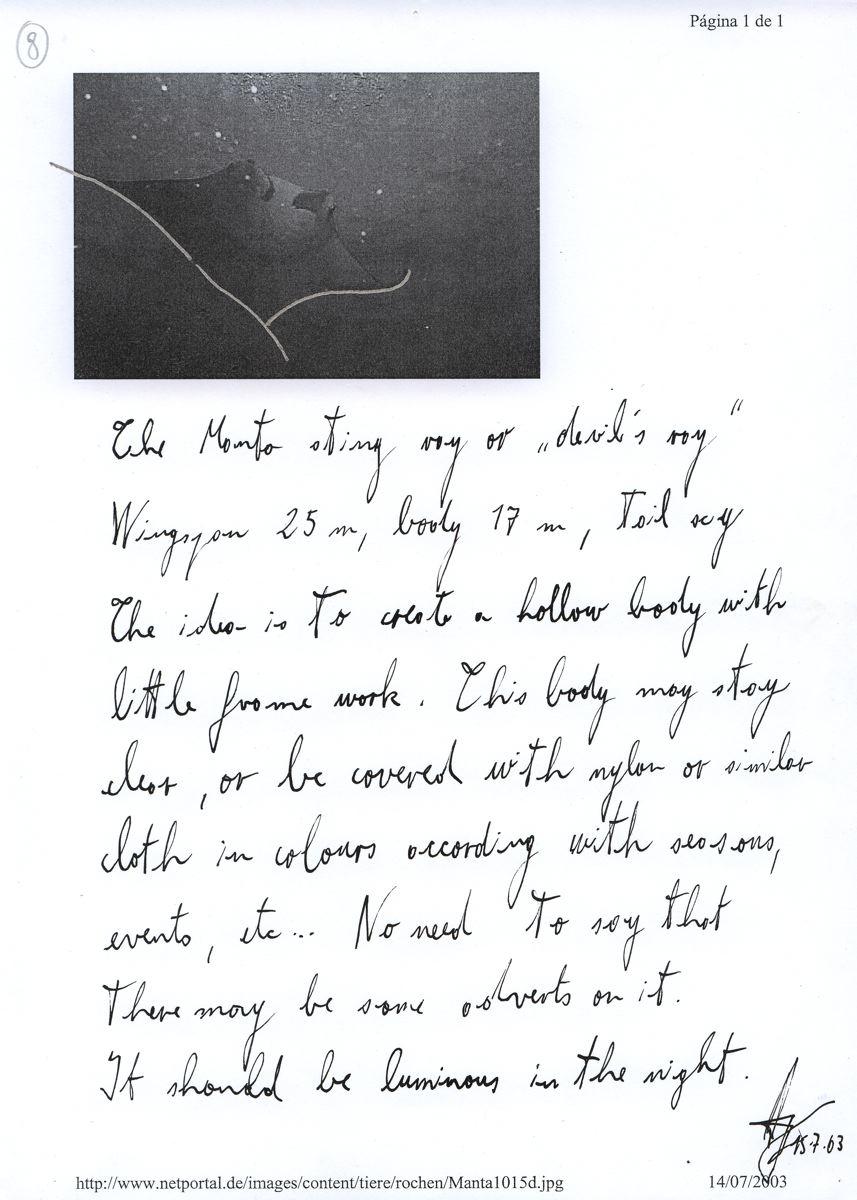 Página 1 de 1
8
The Manta sting ray or „devil's ray“
Wingspan 25 m, body 17 m, tail
The idea is to create a hollow body with
little frame work. This body may stay
clear, or be covered with nylon or similar
cloth in colours according with seasons,
events, etc... No need to say that
there may be some adverts on it.
It should be luminous in the night.
15.7.03
http://www.netportal.de/images/content/tiere/rochen/Manta1015d.jpg
14/07/2003